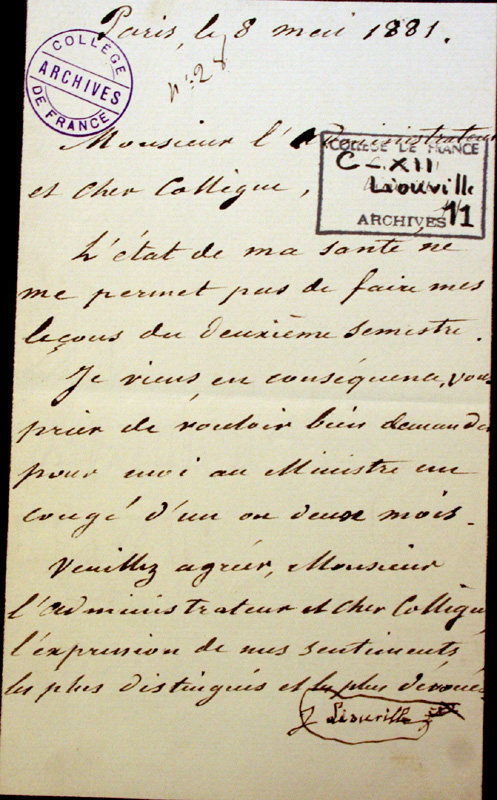 Paris, le 8 mai 1881.
COLLÈGE
ARCHIVES
DE FRANCE
n: 28
Monsieur l'Administrateur
COLLÈGE DE FRANCE
C-XII
Liouville
ARCHIVES 11
et cher Collègue,
L'état de ma santé ne
me permet pas de faire mes
leçons du deuxième semestre.
Je viens, en conséquence, vous
prier de vouloir bien demander
pour moi au Ministre un
congé d'un ou deux mois.
Veuillez agréer, Monsieur
l'administrateur et cher Collègue,
l'expression de mes sentiments
les plus distingués et les plus dévoués
J Liouville